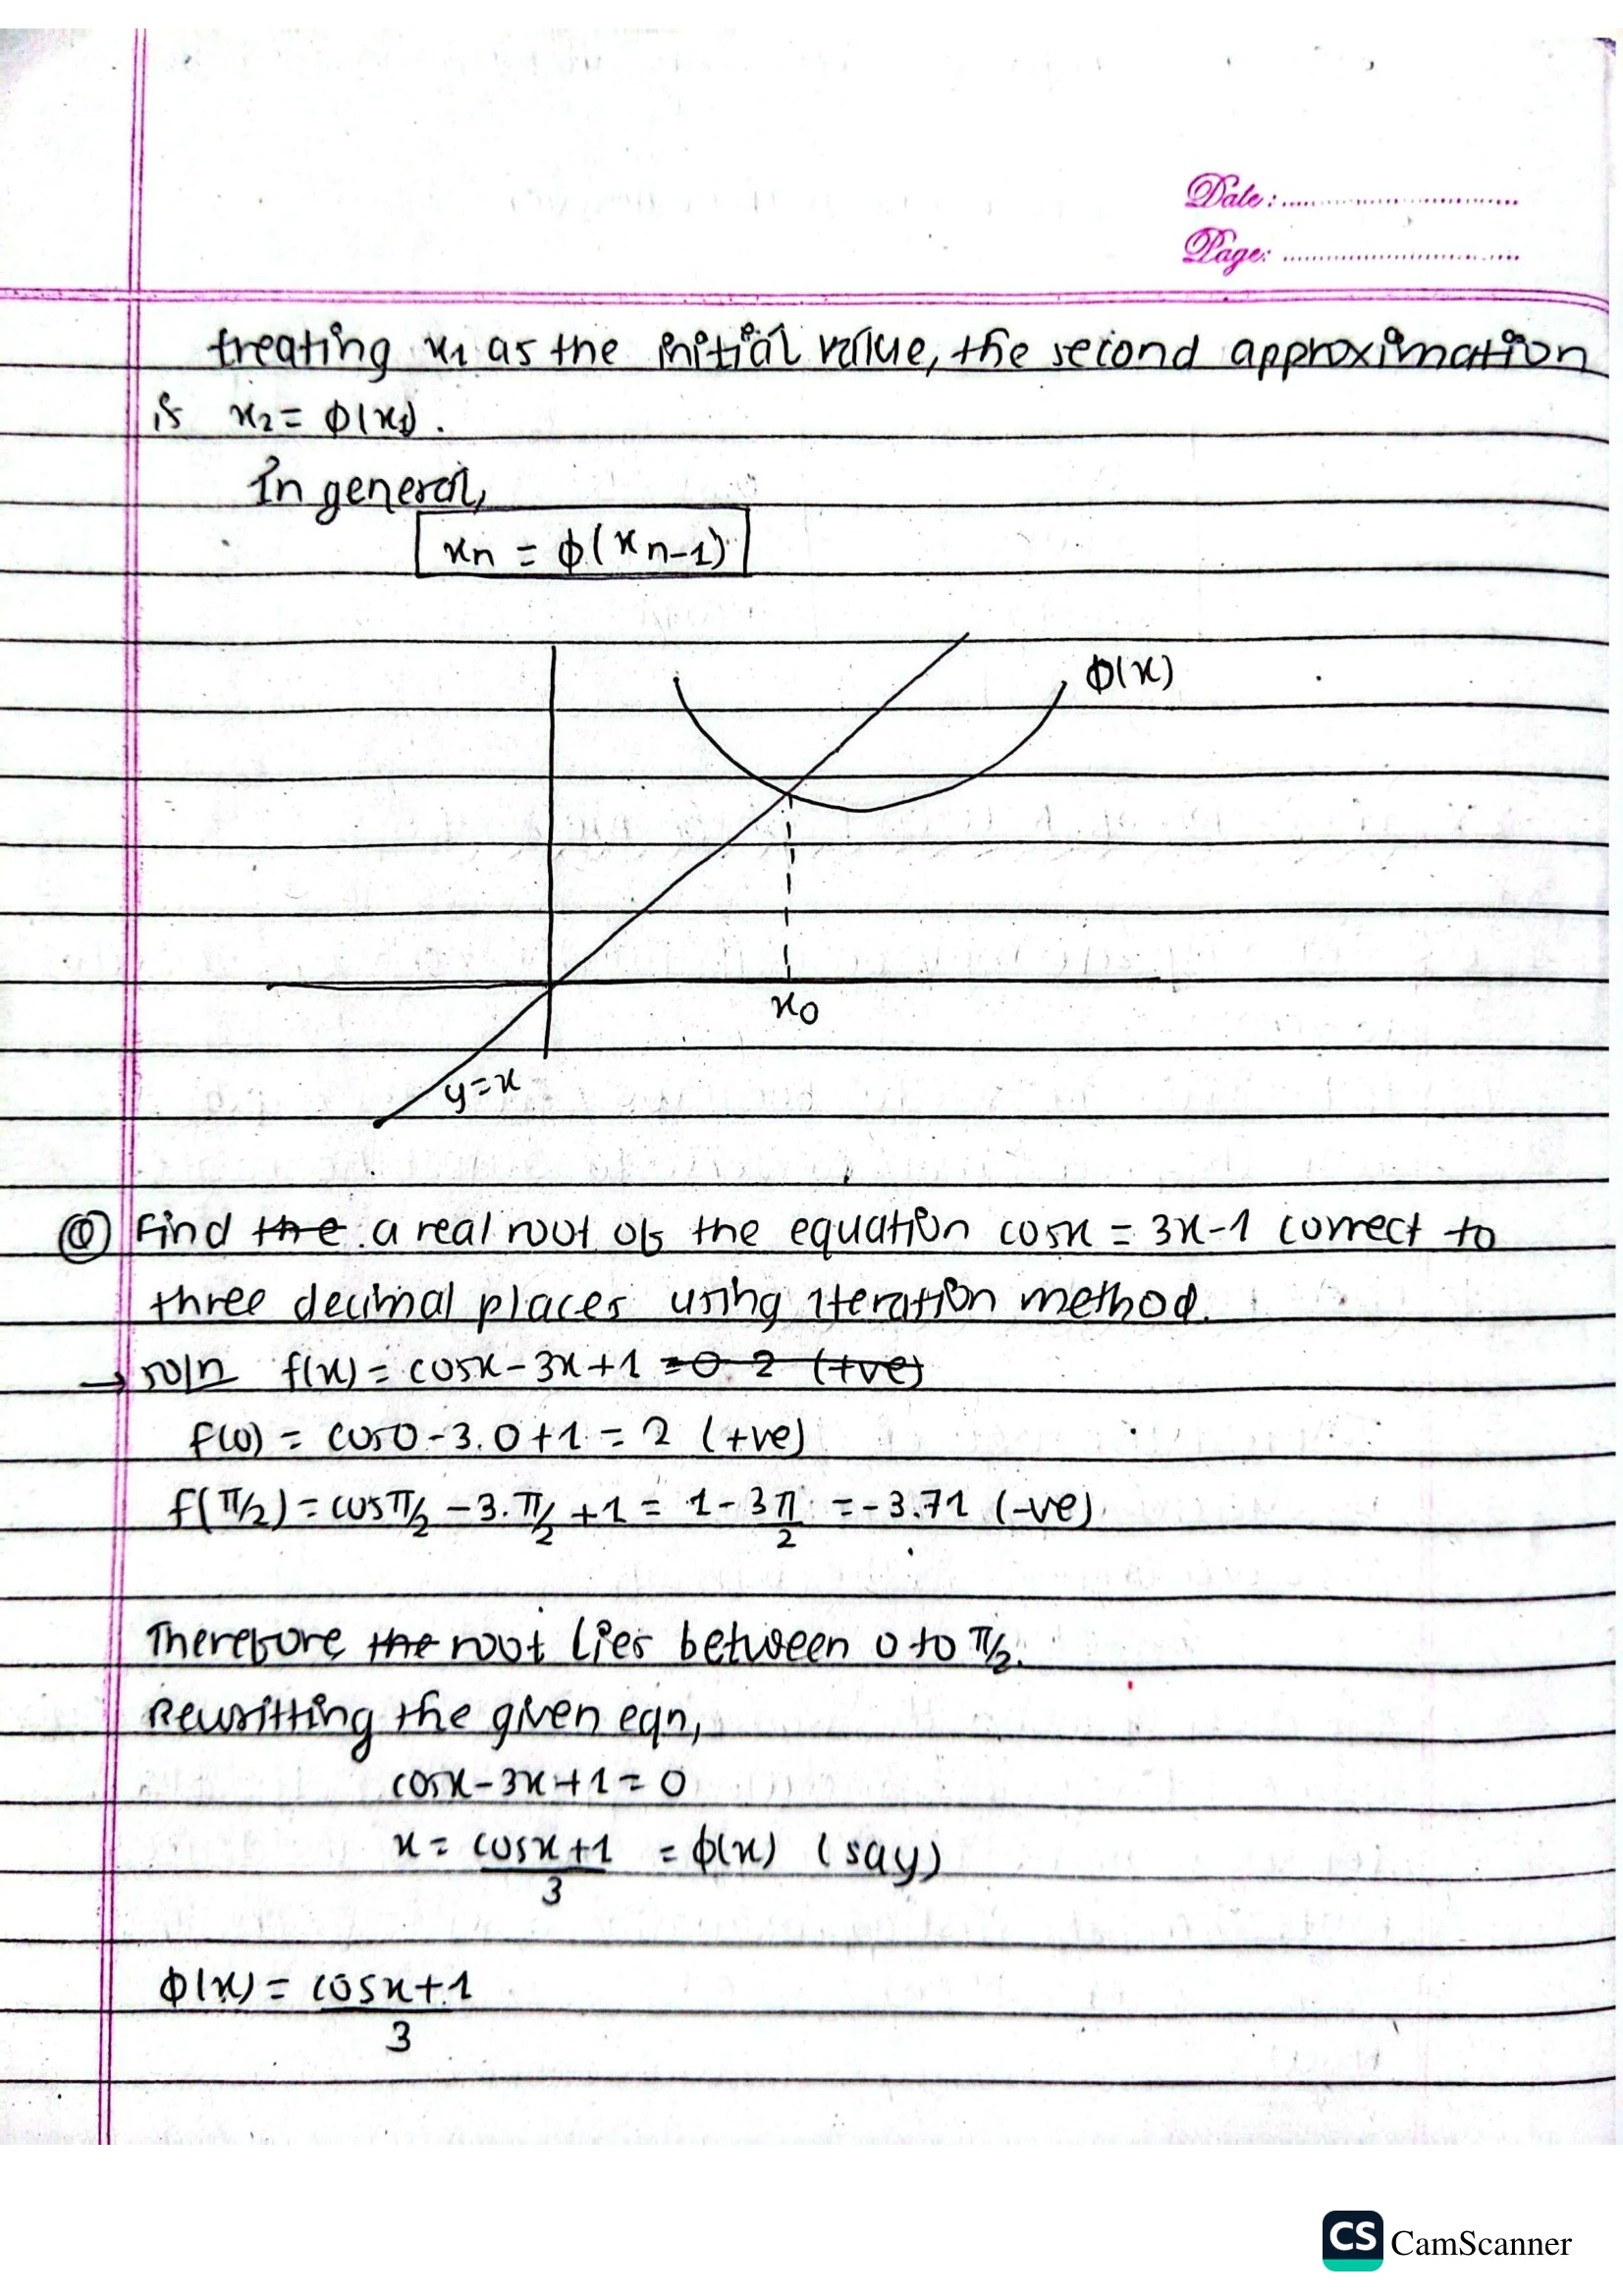 Date:
Page:
treating x1 as the initial value, the second approximation
is x2 = ϕ(x1).
In general,
xn = ϕ(xn-1)
ϕ(x)
x0
y=x
Q) Find the a real root of the equation cosx = 3x-1 correct to
three decimal places using iteration method.
→ soln f(x) = cosx - 3x + 1 = 0 2 (+ve)
f(0) = cos0 - 3.0 + 1 = 2 (+ve)
f(π/2) = cosπ/2 - 3.π/2 + 1 = 1 - 3π/2 = -3.71 (-ve)
Therefore the root lies between 0 to π/2.
Rewritting the given eqn,
cosx - 3x + 1 = 0
x = cosx + 1 / 3 = ϕ(x) (say)
ϕ(x) = cosx + 1 / 3
CS CamScanner